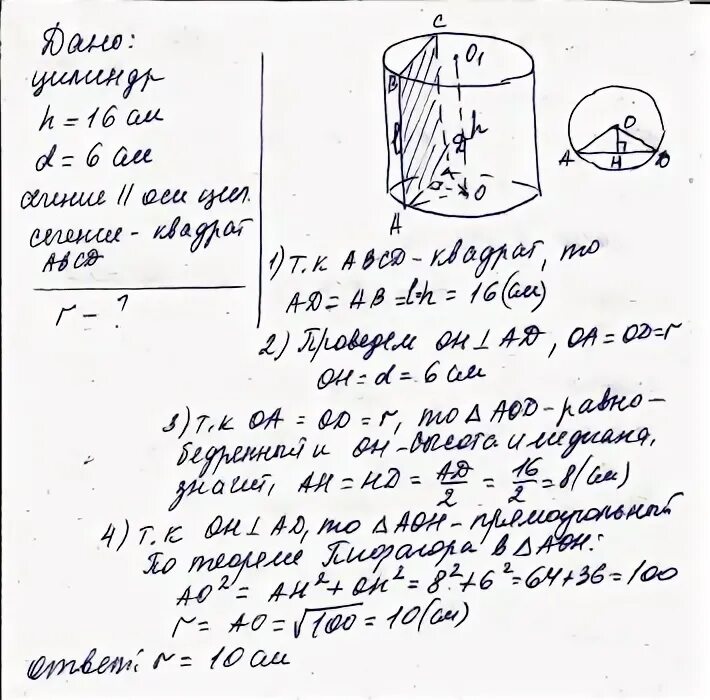 Дано:
цилиндр
h = 16 см
d = 6 см
сечение || оси цил.
сечение - квадрат
ABCD
r - ?
C
O₁
B
l
D
h
A
O
O
A
H
D
1) т.к ABCD - квадрат, то
AD = AB = l = h = 16 (см)
2) Проведем OH ⊥ AD, OA = OD = r
OH = d = 6 см
3) т.к OA = OD = r, то △ AOD - равно-
бедренный и OH - высота и медиана,
значит, AH = HD = AD/2 = 16/2 = 8 (см)
4) т.к OH ⊥ AD, то △ AOH - прямоугольный
По теореме Пифагора в △ AOH:
AO² = AH² + OH² = 8² + 6² = 64 + 36 = 100
r = AO = √100 = 10 (см)
ответ: r = 10 см